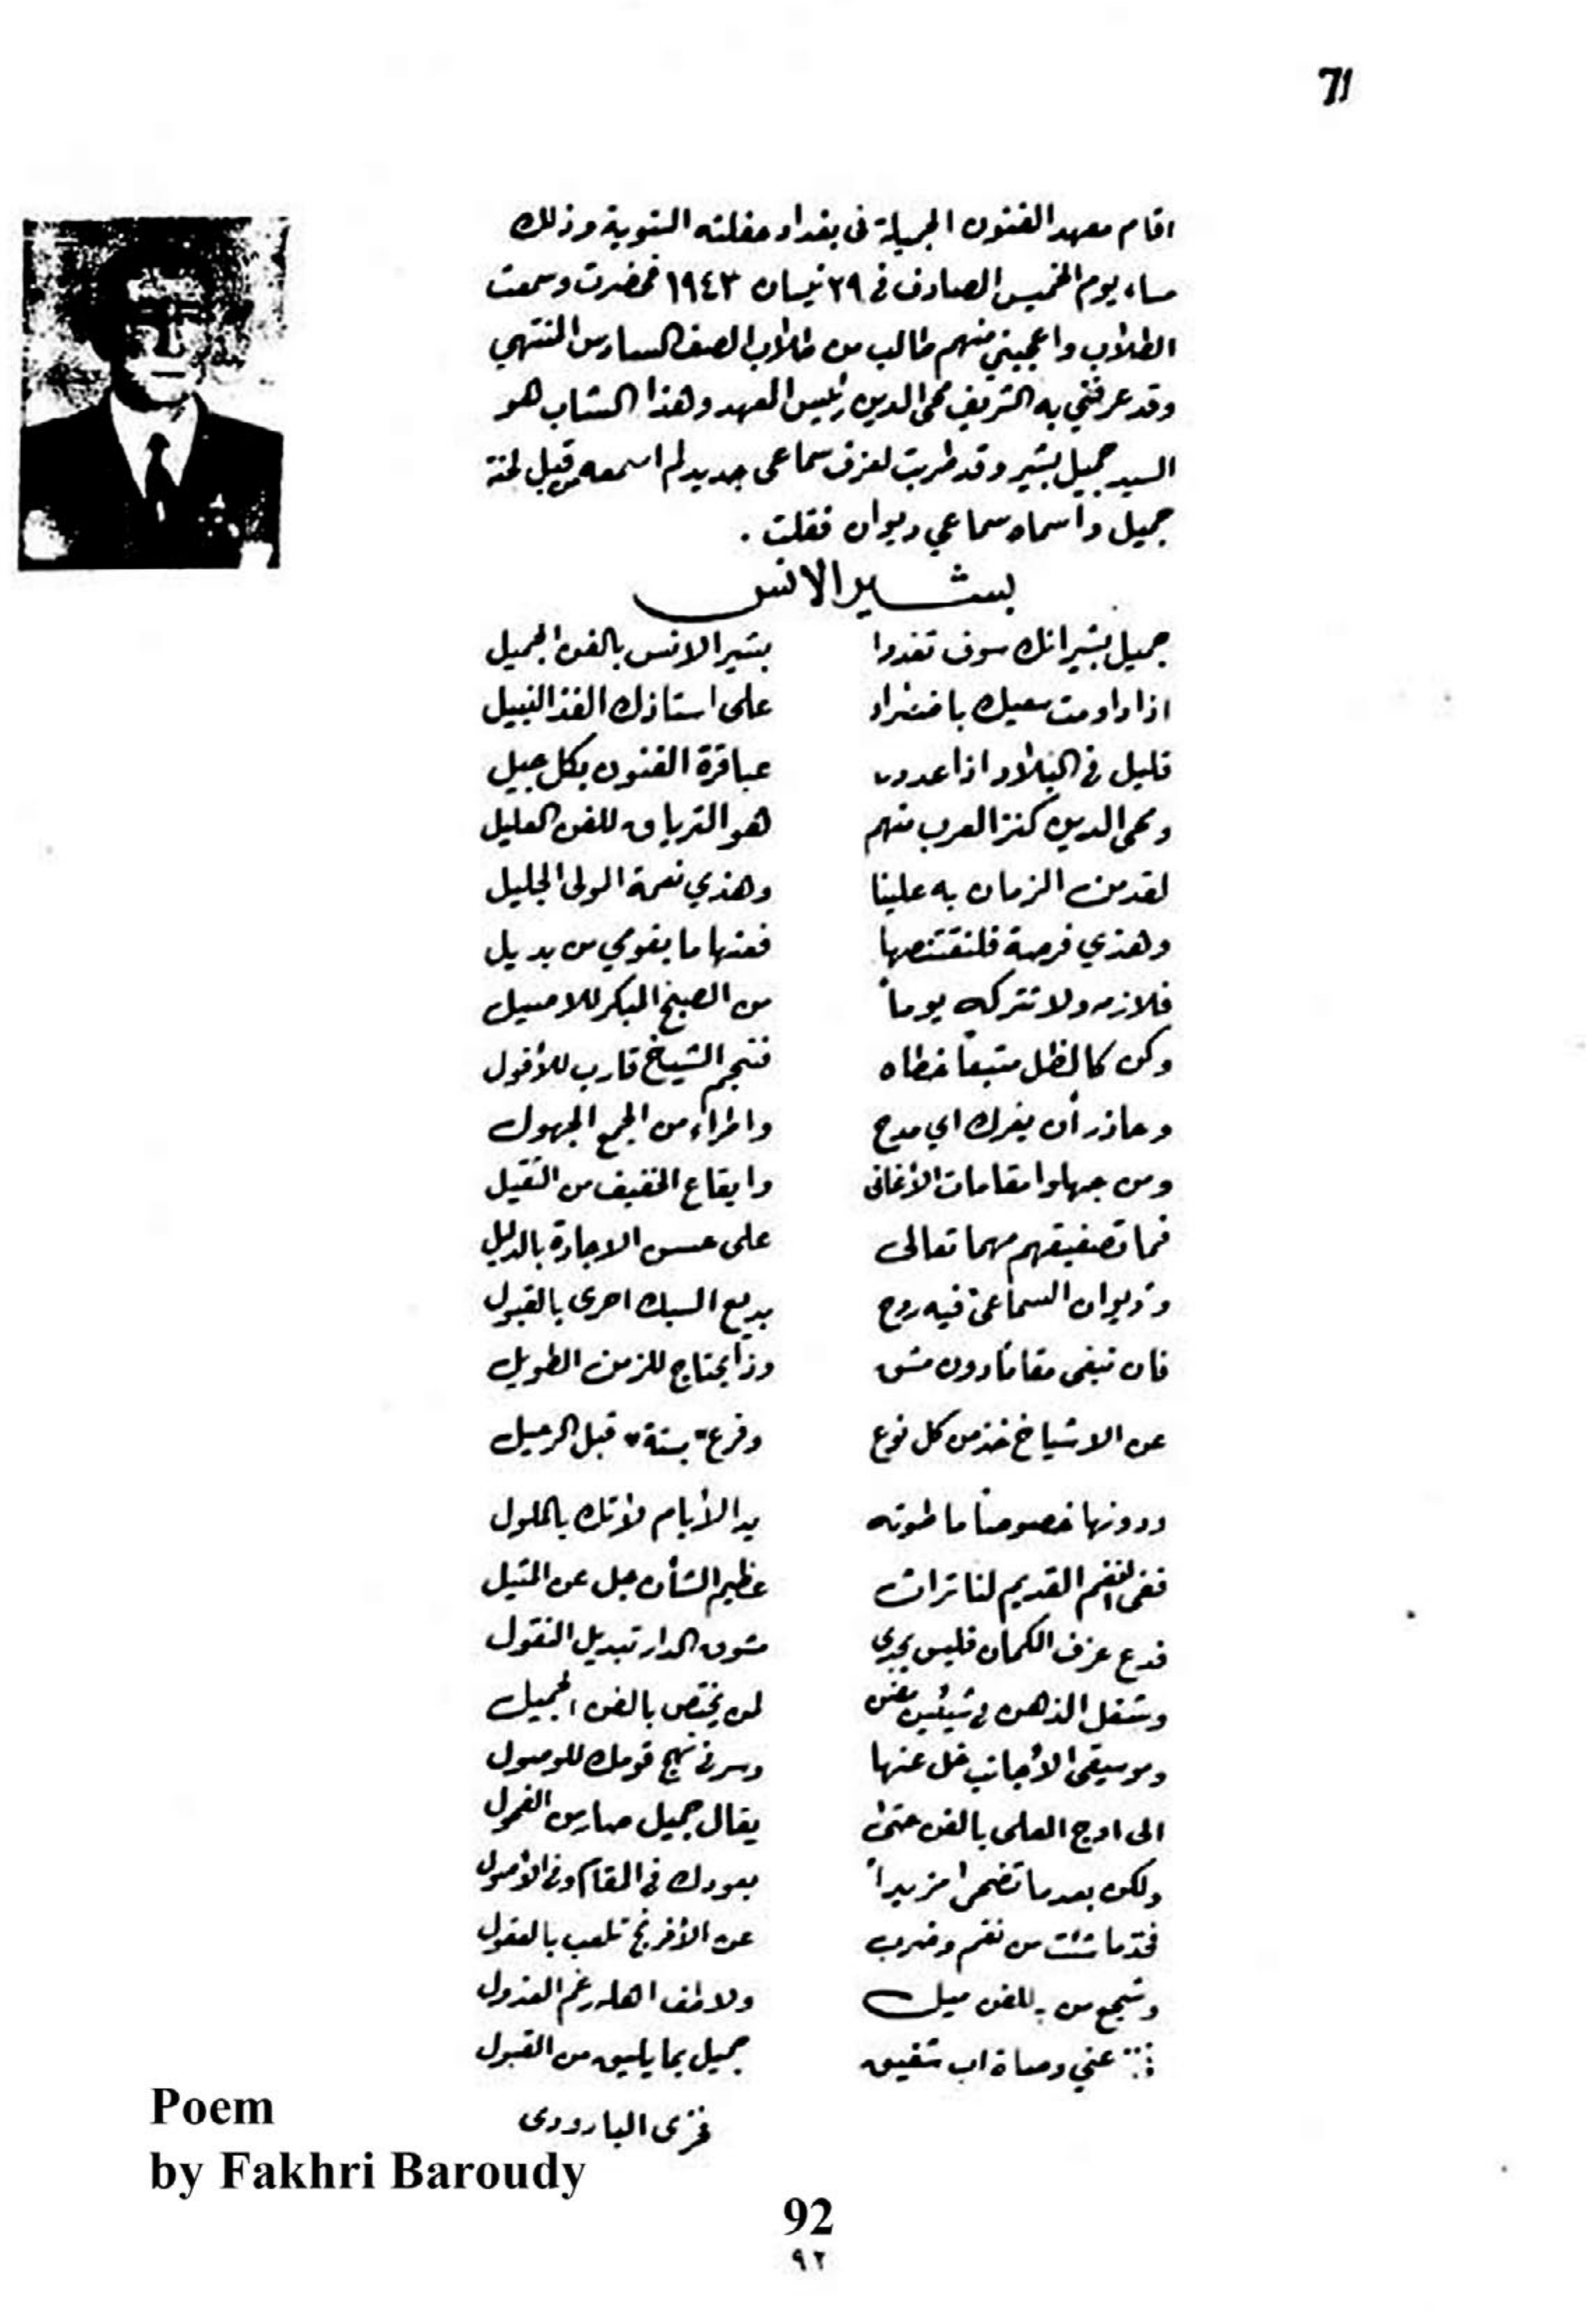 71
اقام معهد الفنون الجميلة في بغداد حفلته السنوية وذلك
مساء يوم الخميس الصادف في ٢٩ نيسان ١٩٤٣ فحضرت وسمعت
الطلاب واعجبني منهم طالب من طلاب الصف السادس المنتهي
وقد عرفني به الشريف محي الدين رئيس المعهد وهذا الشاب هو
السيد جميل بشير وقد طربت لعزف سماعي جديد لم اسمعه من قبل لحنه
جميل وأسماه سماعي ديوان فقلت .
بشير الانس
جميل بشير انك سوف تغدوا بشير الانس بالفن الجميل
اذا داومت سعيك باضطراد على استاذك الفذ النبيل
قليل في البلاد اذا عددنا عباقرة الفنون بكل جيل
ومحي الدين كنز العرب منهم هو الترياق للفن العليل
لقد من الزمان به علينا وهذي نعمة المولى الجليل
وهذي فرصة فلنقتنصها فعنها ما بقومي من بديل
فلازمه ولا تتركه يوماً من الصبح المبكر للاصيل
وكن كالظل متبعاً خطاه فنجم الشيخ قارب للأفول
وحاذر أن يغرك اي مدح واطراء من الجمع الجهول
ومن جهلوا مقامات الأغاني وايقاع الخفيف من الثقيل
فما تصفيقهم مهما تعالى على حسن الاجادة بالدليل
وديوان السماعي فيه روح بديع السبك احرى بالقبول
فان تبغى مقاماً دون مشق وذا يحتاج للزمن الطويل
عن الاشياخ خذ من كل نوع وفرع "بستة" قبل الرحيل
ودونها خصوصاً ما طوته يد الأيام لاتك بالملول
ففي النغم القديم لنا تراث عظيم الشأن جل عن المثيل
فدع عزف الكمان فليس يجدي مشوق الدار تبديل النقول
وشغل الذهن في شيئين لمن يختص بالفن الجميل
وموسيقى الأجانب خل عنها وسر في نهج قومك للوصول
الى اوج العلى بالفن حتى يقال جميل صار من الفحول
ولكن بعد ما تضحى مزيداً بعودك في المقام وفي الأصول
فخذ ما شئت من نغم وضرب عن الأفرنج تلعب بالعقول
وشجع من به للفن ميل ولاطف اهله رغم العذول
عني وصاة اب شفيق جميل بما يليق من القبول
فخري البارودي
Poem
by Fakhri Baroudy
92
٩٢